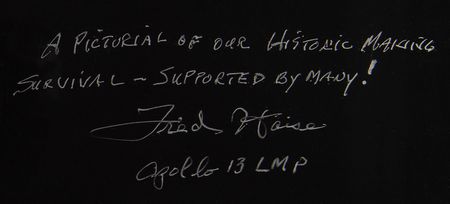 A PICTORIAL OF OUR HISTORIC MAKING
SURVIVAL ~ SUPPORTED BY MANY!
Fred Haise
Apollo 13 LMP